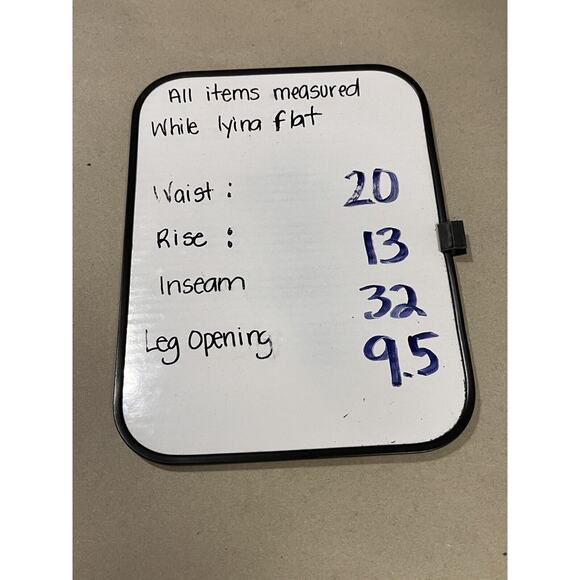 All items measured
While lying flat
Waist : 20
Rise : 13
Inseam 32
Leg Opening 9.5